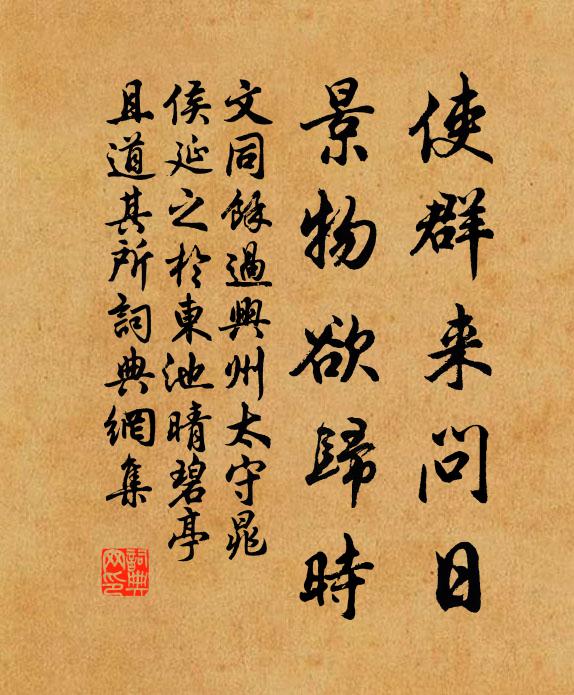 使群来問日
景物欲歸時
文同餘過興州太守晁
侯延之於東池晴碧亭
且道其所詞典網集
詞典网印